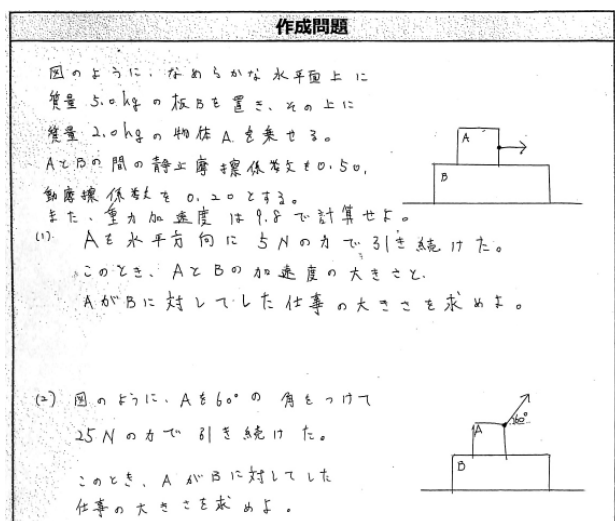 作成問題
図のように、なめらかな水平面上に
質量5.0kgの板Bを置き、その上に
質量2.0kgの物体Aを乗せる。
AとBの間の静止摩擦係数を0.50,
動摩擦係数を0.20とする。
また、重力加速度は9.8で計算せよ。
(1). Aを水平方向に5Nの力で引き続けた。
このとき、AとBの加速度の大きさと、
AがBに対してした仕事の大きさを求めよ。
A
B
(2) 図のように、Aを60°の角をつけて
25Nの力で引き続けた。
このとき、AがBに対してした
仕事の大きさを求めよ。
60°
A
B